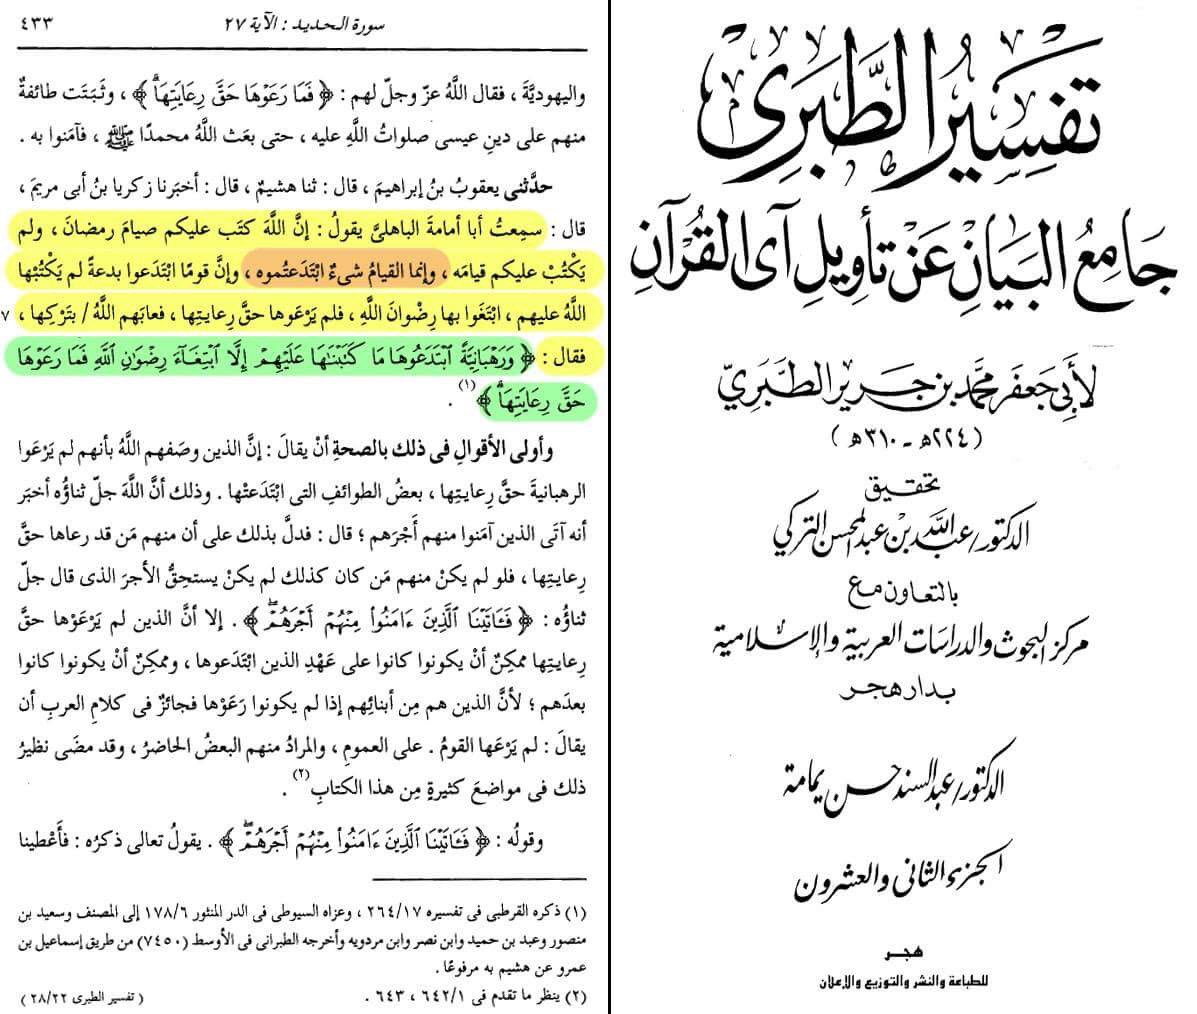 سورة الحديد : الآية ٢٧
٤٣٣
واليهوديَّةَ ، فقال اللَّهُ عزّ وجلّ لهم : ﴿ فَمَا رَعَوْهَا حَقَّ رِعَايَتِهَا ﴾ ، وثَبَتَت طائفةٌ
منهم على دينِ عيسى صلواتُ اللَّهِ عليه ، حتى بعَث اللَّهُ محمدًا ﷺ ، فآمَنوا به .
حدَّثنى يعقوبُ بنُ إبراهيمَ ، قال : ثنا هشيمٌ ، قال : أخبَرنا زكريا بنُ أبى مريمَ ،
قال : سمِعتُ أبا أمامةَ الباهلىَّ يقولُ : إنَّ اللَّهَ كتَب عليكم صيامَ رمضانَ ، ولم
يَكْتُبْ عليكم قيامَه ، وإنما القيامُ شىءٌ ابْتَدَعتُموه ، وإنَّ قومًا ابْتَدَعوا بدعةً لم يَكْتُبْها
اللَّهُ عليهم ، ابْتَغَوا بها رِضْوانَ اللَّهِ ، فلم يَرْعَوها حقَّ رِعايتِها ، فعابَهم اللَّهُ / بتَرْكِها ،
٧
فقال : ﴿ وَرَهْبَانِيَّةً ٱبْتَدَعُوهَا مَا كَتَبْنَٰهَا عَلَيْهِمْ إِلَّا ٱبْتِغَآءَ رِضْوَٰنِ ٱللَّهِ فَمَا رَعَوْهَا
حَقَّ رِعَايَتِهَا ﴾ (١) .
وأولى الأقوالِ فى ذلك بالصحةِ أنْ يقالَ : إنَّ الذين وصَفهم اللَّهُ بأنهم لم يَرْعَوا
الرهبانيةَ حقَّ رِعايتِها ، بعضُ الطوائفِ التى ابْتَدَعتْها . وذلك أنَّ اللَّهَ جلّ ثناؤُه أخبَر
أنه آتَى الذين آمَنوا منهم أَجْرَهم ؛ قال : فدلَّ بذلك على أن منهم مَن قد رعاها حقَّ
رِعايتِها ، فلو لم يكنْ منهم مَن كان كذلك لم يكنْ يستحِقُّ الأجرَ الذى قال جلّ
ثناؤُه : ﴿ فَـَٔاتَيْنَا ٱلَّذِينَ ءَامَنُوا۟ مِنْهُمْ أَجْرَهُمْ ﴾ . إلا أنَّ الذين لم يَرْعَوْها حقَّ
رِعايتِها ممكِنٌ أنْ يكونوا كانوا على عَهْدِ الذين ابْتَدَعوها ، وممكِنٌ أنْ يكونوا كانوا
بعدَهم ؛ لأنَّ الذين هم مِن أبنائِهم إذا لم يكونوا رَعَوْها فجائزٌ فى كلامِ العربِ أن
يقالَ : لم يَرْعَها القومُ . على العمومِ ، والمرادُ منهم البعضُ الحاضرُ ، وقد مضَى نظيرُ
ذلك فى مواضعَ كثيرةٍ مِن هذا الكتابِ (٢) .
وقولُه : ﴿ فَـَٔاتَيْنَا ٱلَّذِينَ ءَامَنُوا۟ مِنْهُمْ أَجْرَهُمْ ﴾ . يقولُ تعالى ذكرُه : فأَعْطينا
(١) ذكره القرطبى فى تفسيره ٢٦٤/١٧ ، وعزاه السيوطى فى الدر المنثور ١٧٨/٦ إلى المصنف وسعيد بن
منصور وعبد بن حميد وابن نصر وابن مردويه وأخرجه الطبرانى فى الأوسط (٧٤٥٠) من طريق إسماعيل بن
عمرو عن هشيم به مرفوعًا .
(٢) ينظر ما تقدم فى ٦٤٢/١ ، ٦٤٣ .
( تفسير الطبرى ٢٨/٢٢ )
تفسير الطبرى
جامع البيان عن تأويل آى القرآن
لأبى جعفر محمد بن جرير الطبرى
( ٢٢٤هـ - ٣١٠هـ )
تحقيق
الدكتور/ عبد الله بن عبد المحسن التركي
بالتعاون مع
مركز البحوث والدراسات العربية والإسلامية
بدار هجر
الدكتور/ عبد السند حسن يمامة
الجزء الثانى والعشرون
هجر
للطباعة والنشر والتوزيع والإعلان